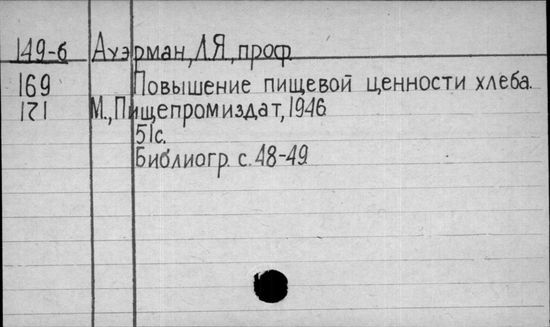 149-б Ауэрман, Л.Я., проф.
169 Повышение пищевой ценности хлеба.
171 М., Пищепромиздат, 1946
51с.
Библиогр. с. 48-49